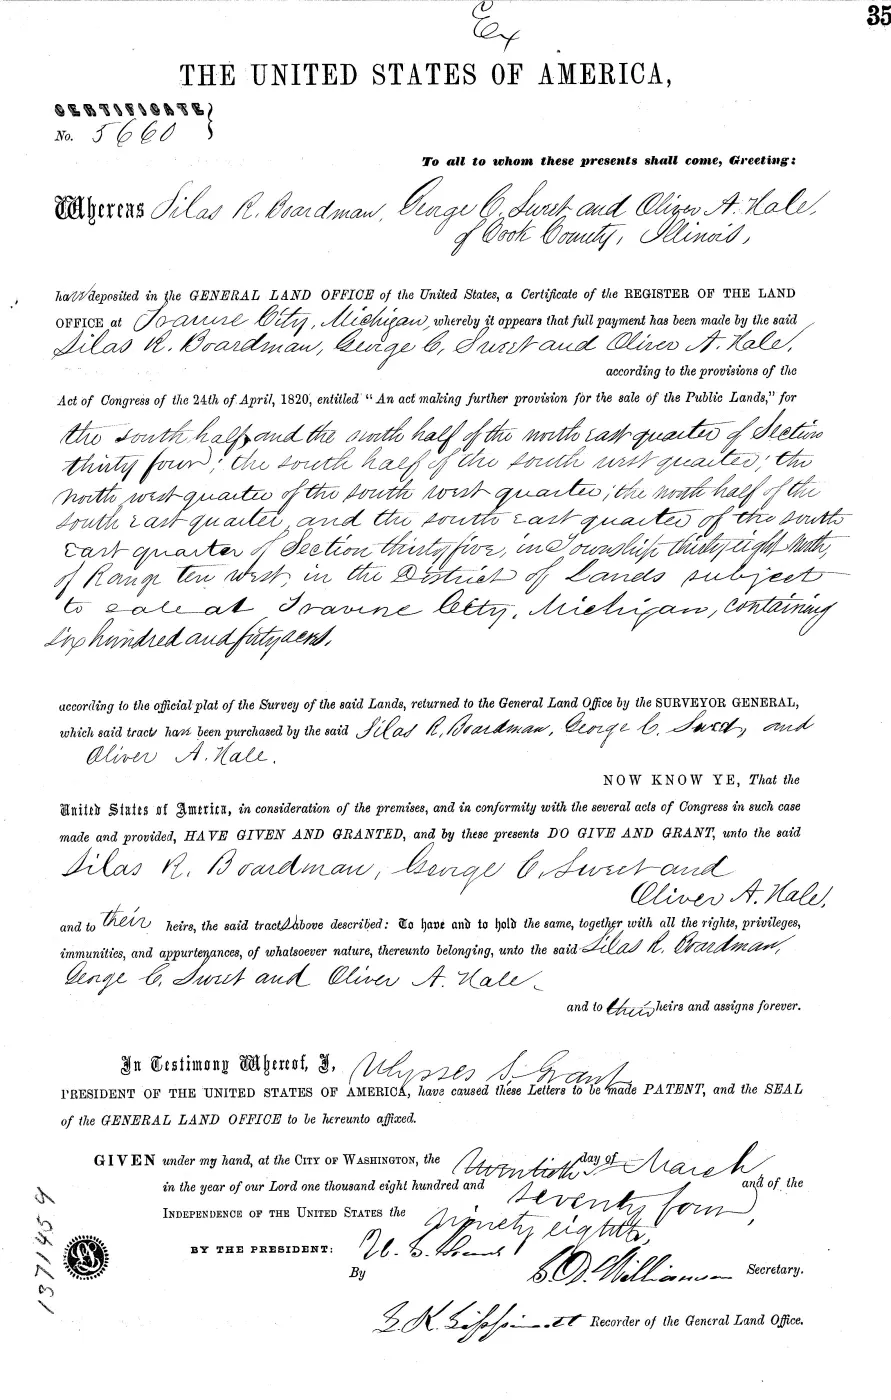 Ex
35
THE UNITED STATES OF AMERICA,
CERTIFICATE
No. 5660
To all to whom these presents shall come, Greeting:
Whereas Silas R. Boardman, George C. Sweet and Oliver A. Hale,
of Cook County, Illinois,
have deposited in the GENERAL LAND OFFICE of the United States, a Certificate of the REGISTER OF THE LAND
OFFICE at Traverse City, Michigan, whereby it appears that full payment has been made by the said
Silas R. Boardman, George C. Sweet and Oliver A. Hale,
according to the provisions of the
Act of Congress of the 24th of April, 1820, entitled "An act making further provision for the sale of the Public Lands," for
the south half, and the north half of the north east quarter of Section
thirty four; the south half of the south west quarter; the
north west quarter of the south west quarter; the north half of the
south east quarter, and the south east quarter of the south
east quarter of Section thirty five, in Township thirty eight North,
of Range ten west, in the District of Lands subject
to sale at Traverse City, Michigan, containing
six hundred and forty acres,
according to the official plat of the Survey of the said Lands, returned to the General Land Office by the SURVEYOR GENERAL,
which said tracts have been purchased by the said Silas R. Boardman, George C. Sweet, and
Oliver A. Hale.
NOW KNOW YE, That the
United States of America, in consideration of the premises, and in conformity with the several acts of Congress in such case
made and provided, HAVE GIVEN AND GRANTED, and by these presents DO GIVE AND GRANT, unto the said
Silas R. Boardman, George C. Sweet and
Oliver A. Hale,
and to their heirs, the said tracts above described: To have and to hold the same, together with all the rights, privileges,
immunities, and appurtenances, of whatsoever nature, thereunto belonging, unto the said Silas R. Boardman,
George C. Sweet and Oliver A. Hale
and to their heirs and assigns forever.
In Testimony Whereof, I, Ulysses S. Grant
PRESIDENT OF THE UNITED STATES OF AMERICA, have caused these Letters to be made PATENT, and the SEAL
of the GENERAL LAND OFFICE to be hereunto affixed.
GIVEN under my hand, at the CITY OF WASHINGTON, the twentieth day of March,
in the year of our Lord one thousand eight hundred and seventy four, and of the
INDEPENDENCE OF THE UNITED STATES the ninety eighth,
BY THE PRESIDENT: U. S. Grant
By S. D. Williamson Secretary.
L. K. Lippincott Recorder of the General Land Office.
1371459
LS